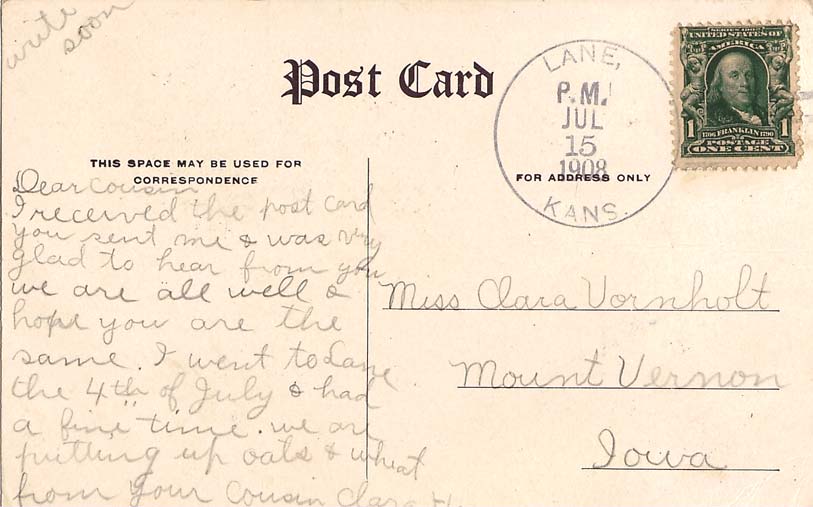 write
soon
Post Card
THIS SPACE MAY BE USED FOR
CORRESPONDENCE
FOR ADDRESS ONLY
LANE,
P.M.
JUL
15
1908
KANS.
SERIES 1902
UNITED STATES OF
AMERICA
1 1706 FRANKLIN 1790 1
POSTAGE
ONE CENT
Dear cousin
I received the post card
you sent me & was very
glad to hear from you
we are all well &
hope you are the
same. I went to Lane
the 4th of July & had
a fine time. we are
putting up oats & wheat
from your cousin Clara H
Miss Clara Vornholt
Mount Vernon
Iowa